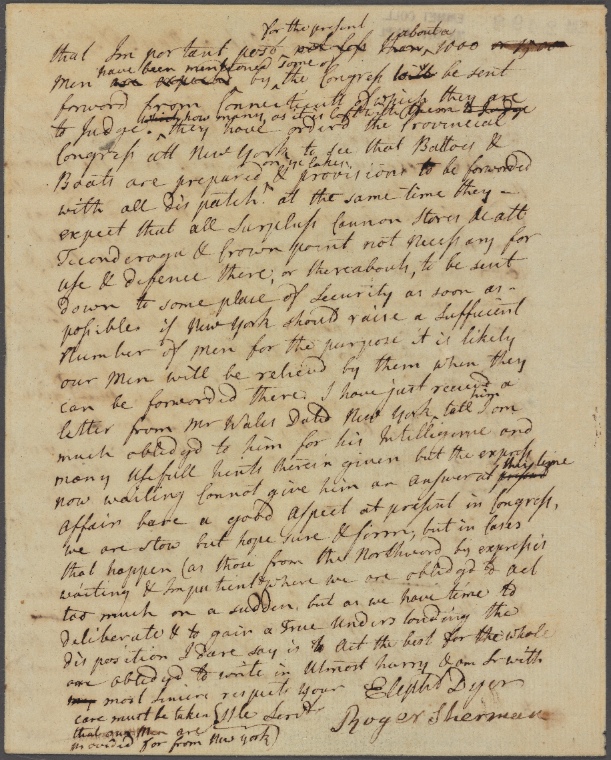 for the present
that Important post, not less than about a 1000 or 1500
have been mentioned some of
Men are expected by the Congress will be sent
forward from Connecticutt which they are
to Judge. how many as it is left with them to Judge
they have orderd the Provincial
Congress att New York to see that Battoes &
on ye Lakes
Boats are prepared & provisions to be forwarded
with all dispatch. at the same time they
expect that all Surpluss Cannon Stores &c att
Ticonderoga & Crown point not Necessary for
use & defence there, or thereabouts, to be sent
down to some place of Security as soon as
possible. if New York should raise a Sufficient
Number of men for the purpose it is likely
our Men will be relievd by them when they
can be forwarded there. I have just receivd a
letter from Mr Wales Dated New York, tell him I am
much obliedgd to him for his Intelligence and
many Usefull hints therein given but the express
now waiting Cannot give him an answer at this time
Affair bare a good Aspect at present in Congress,
we are slow but hope sure & firm, but in Cases
that happen (as those from the Northward by expresses
waiting & Impatient) where we are obliedgd to act
too much on a sudden, but as we have time to
deliberate & to gain a True Understanding the
disposition I dare say is to Act the best for the whole
are obliedgd to write in Utmost hurry & am Sr with
most sincere respects Your
Eliphlt Dyer
care must be taken Hle Servts
Roger Sherman
that our Men are
provided for from New York)